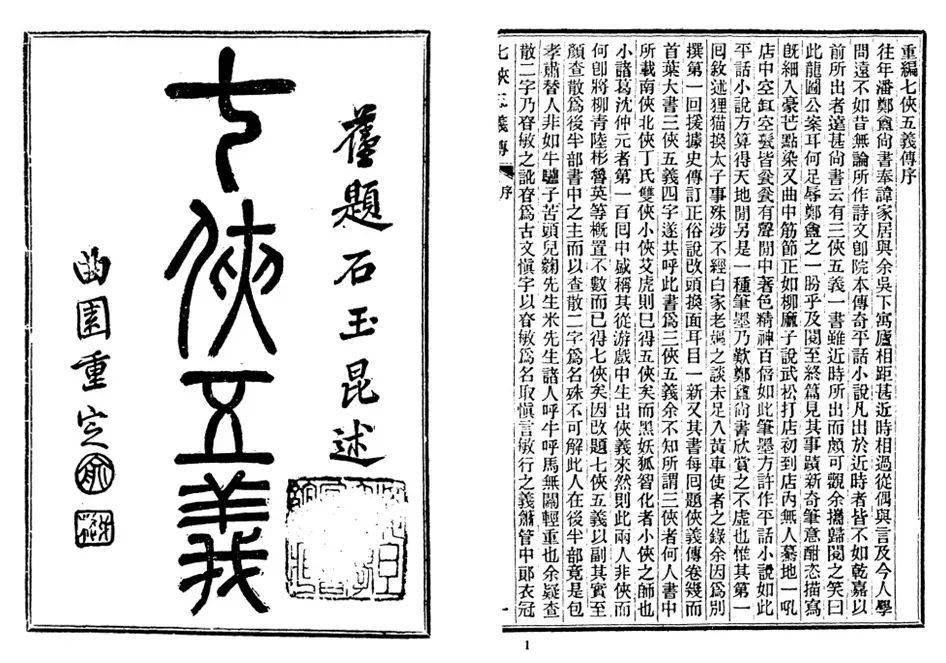 舊題石玉昆述
七俠五義
曲園重定
俞
樾
重編七俠五義傳序
往年潘鄭盦尚書奉諱家居與余吳下寓廬相距甚近時相過從偶與言及今人學
問遠不如昔無論所作詩文卽院本傳奇平話小說凡出於近時者皆不如乾嘉以
前所出者遠甚尚書云有三俠五義一書雖近時所出而頗可觀余攜歸閱之笑曰
此龍圖公案耳何足辱鄭盦之一盼乎及閱至終篇見其事蹟新奇筆意酣恣描寫
旣細入豪芒點染又曲中筋節正如柳麻子說武松打店初到店內無人驀地一吼
店中空缸空甏皆瓮瓮有聲閒中著色精神百倍如此筆墨方許作平話小說如此
平話小說方算得天地閒另是一種筆墨乃歎鄭盦尚書欣賞之不虛也惟其第一
回敘述狸猫換太子事殊涉不經白家老嫗之談未足入黃車使者之錄余因爲別
撰第一回援據史傳訂正俗說改頭換面耳目一新又其書每回題俠義傳卷幾而
首葉大書三俠五義四字遂共呼此書爲三俠五義余不知所謂三俠者何人書中
所載南俠北俠丁氏雙俠小俠艾虎則已得五俠矣而黑妖狐智化者小俠之師也
小諸葛沈仲元者第一百回中盛稱其從游戲中生出俠義來然則此兩人非俠而
何卽將柳青陸彬魯英等概置不數而已得七俠矣因改題七俠五義以副其實至
顏查散爲後半部書中之主而以查散二字爲名殊不可解此人在後半部竟是包
孝肅替人非如牛驢子苦頭兒麴先生米先生諸人呼牛呼馬無關輕重也余疑查
散二字乃眘敏之訛眘爲古文愼字以眘敏爲名取愼言敏行之義蕭管中郎衣冠
七俠五義傳 序 一
1